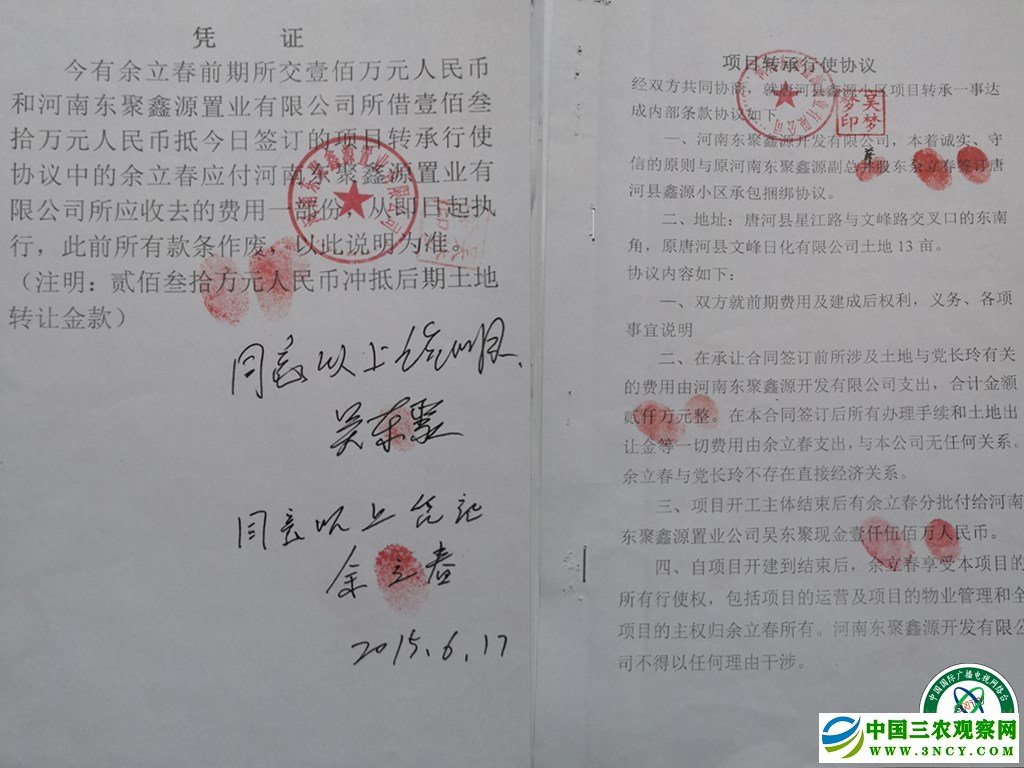 凭 证
今有余立春前期所交壹佰万元人民币
和河南东聚鑫源置业有限公司所借壹佰叁
拾万元人民币抵今日签订的项目转承行使
协议中的余立春应付河南东聚鑫源置业有
限公司所应收去的费用一部份，从即日起执
行，此前所有款条作废，以此说明为准。
（注明：贰佰叁拾万元人民币冲抵后期土地
转让金款）
同意以上
吴东聚
同意以上凭证
余立春
2015.6.17
项目转承行使协议
经双方共同协商，就唐河县鑫源小区项目转承一事达
成内部条款协议如下
吴梦
梦印
一、河南东聚鑫源开发有限公司，本着诚实、守
信的原则与原河南东聚鑫源副总并股东余立春签订唐
河县鑫源小区承包捆绑协议。
二、地址：唐河县星江路与文峰路交叉口的东南
角，原唐河县文峰日化有限公司土地 13 亩。
协议内容如下：
一、双方就前期费用及建成后权利，义务、各项
事宜说明
二、在承让合同签订前所涉及土地与党长玲有关
的费用由河南东聚鑫源开发有限公司支出，合计金额
贰仟万元整。在本合同签订后所有办理手续和土地出
让金等一切费用由余立春支出，与本公司无任何关系。
余立春与党长玲不存在直接经济关系。
三、项目开工主体结束后有余立春分批付给河南
东聚鑫源置业公司吴东聚现金壹仟伍佰万人民币。
四、自项目开建到结束后，余立春享受本项目的
所有行使权，包括项目的运营及项目的物业管理和全
项目的主权归余立春所有。河南东聚鑫源开发有限公
司不得以任何理由干涉。
中国国际广播电视网络台
中国三农观察网
WWW.3NCY.COM